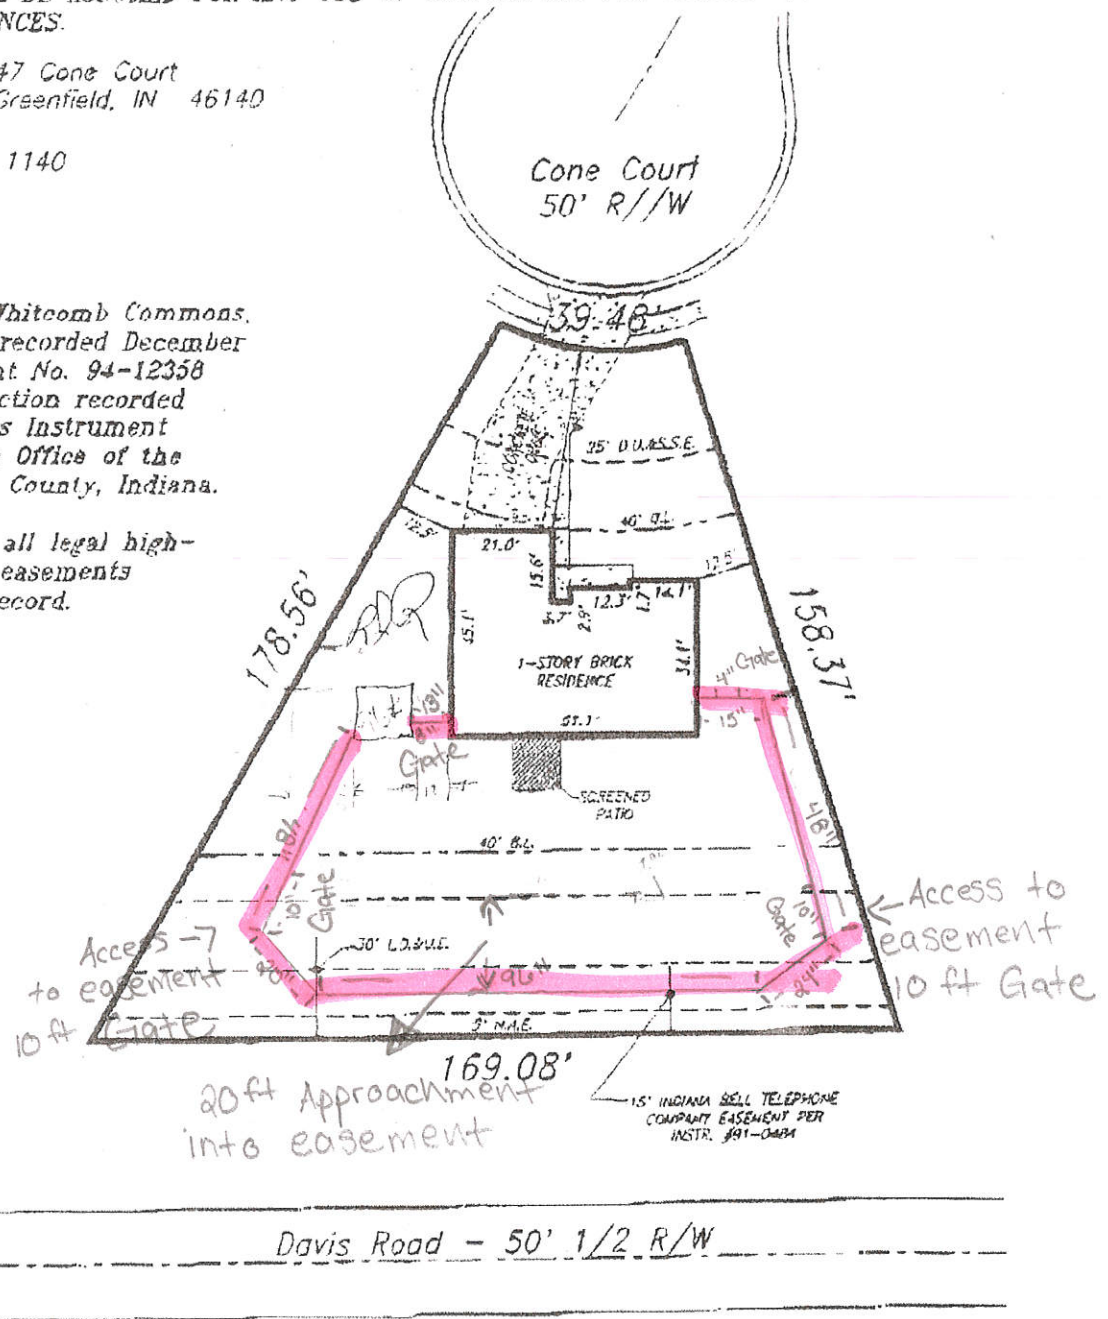 NCES.
47 Cone Court
Greenfield, IN 46140
1140
Cone Court
50' R//W
Whitcomb Commons,
recorded December
nt No. 94-12358
ction recorded
s Instrument
Office of the
County, Indiana.
all legal high-
easements
ecord.
39.48'
35' D.U.&S.S.E.
40' B.L.
12.5'
12.5'
21.0'
15.6'
12.3'
1.7'
14.1'
2.9'
45.1'
1-STORY BRICK
RESIDENCE
53.1'
178.56'
158.37'
4" Gate
15"
13"
8"
Gate
SCREENED
PATIO
40' B.L.
48"
48"
10"
Gate
10"
Gate
Access
to easement
10 ft Gate
Access to
easement
10 ft Gate
30' L.D.&U.E.
20"
96"
24"
5' N.A.E.
169.08'
20 ft Approachment
into easement
15' INDIANA BELL TELEPHONE
COMPANY EASEMENT PER
INSTR.
Davis Road - 50' 1/2 R/W